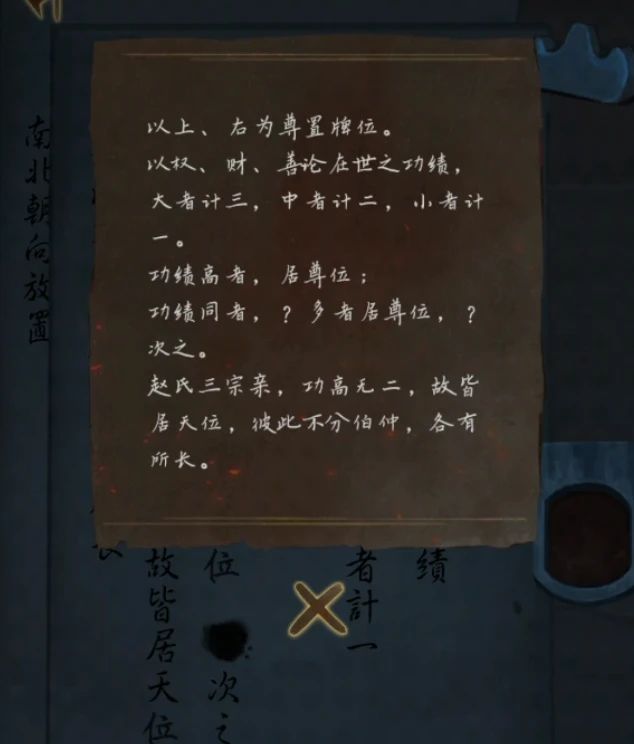 以上、右为尊置牌位。
以权、财、善论在世之功绩，
大者计三，中者计二，小者计
一。
功绩高者，居尊位；
功绩同者，？多者居尊位，？
次之。
赵氏三宗亲，功高无二，故皆
居天位，彼此不分伯仲，各有
所长。
績
者計一
位
次之
故皆居天位
南北朝向放置